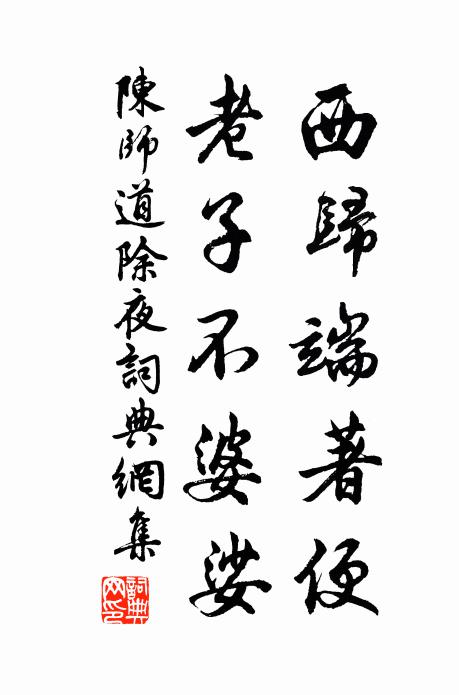 西歸端著便
老子不婆娑
陳師道除夜詞典網集
詞典網印